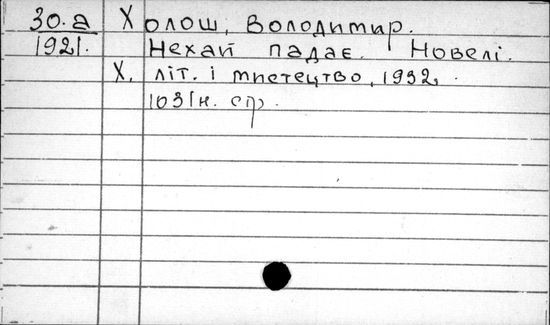 30.а Холош, Володимир.
1921. Нехай падає. Новелі.
Х. літ. і мистецтво, 1932,
103 [н. ср.